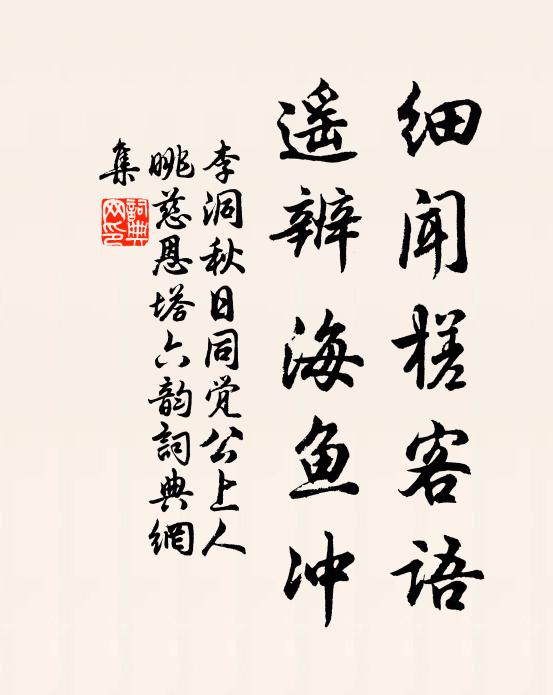 细闻槎客语
遥辨海鱼冲
李洞秋日同觉公上人
眺慈恩塔六韵詞典網
集
詞典網印